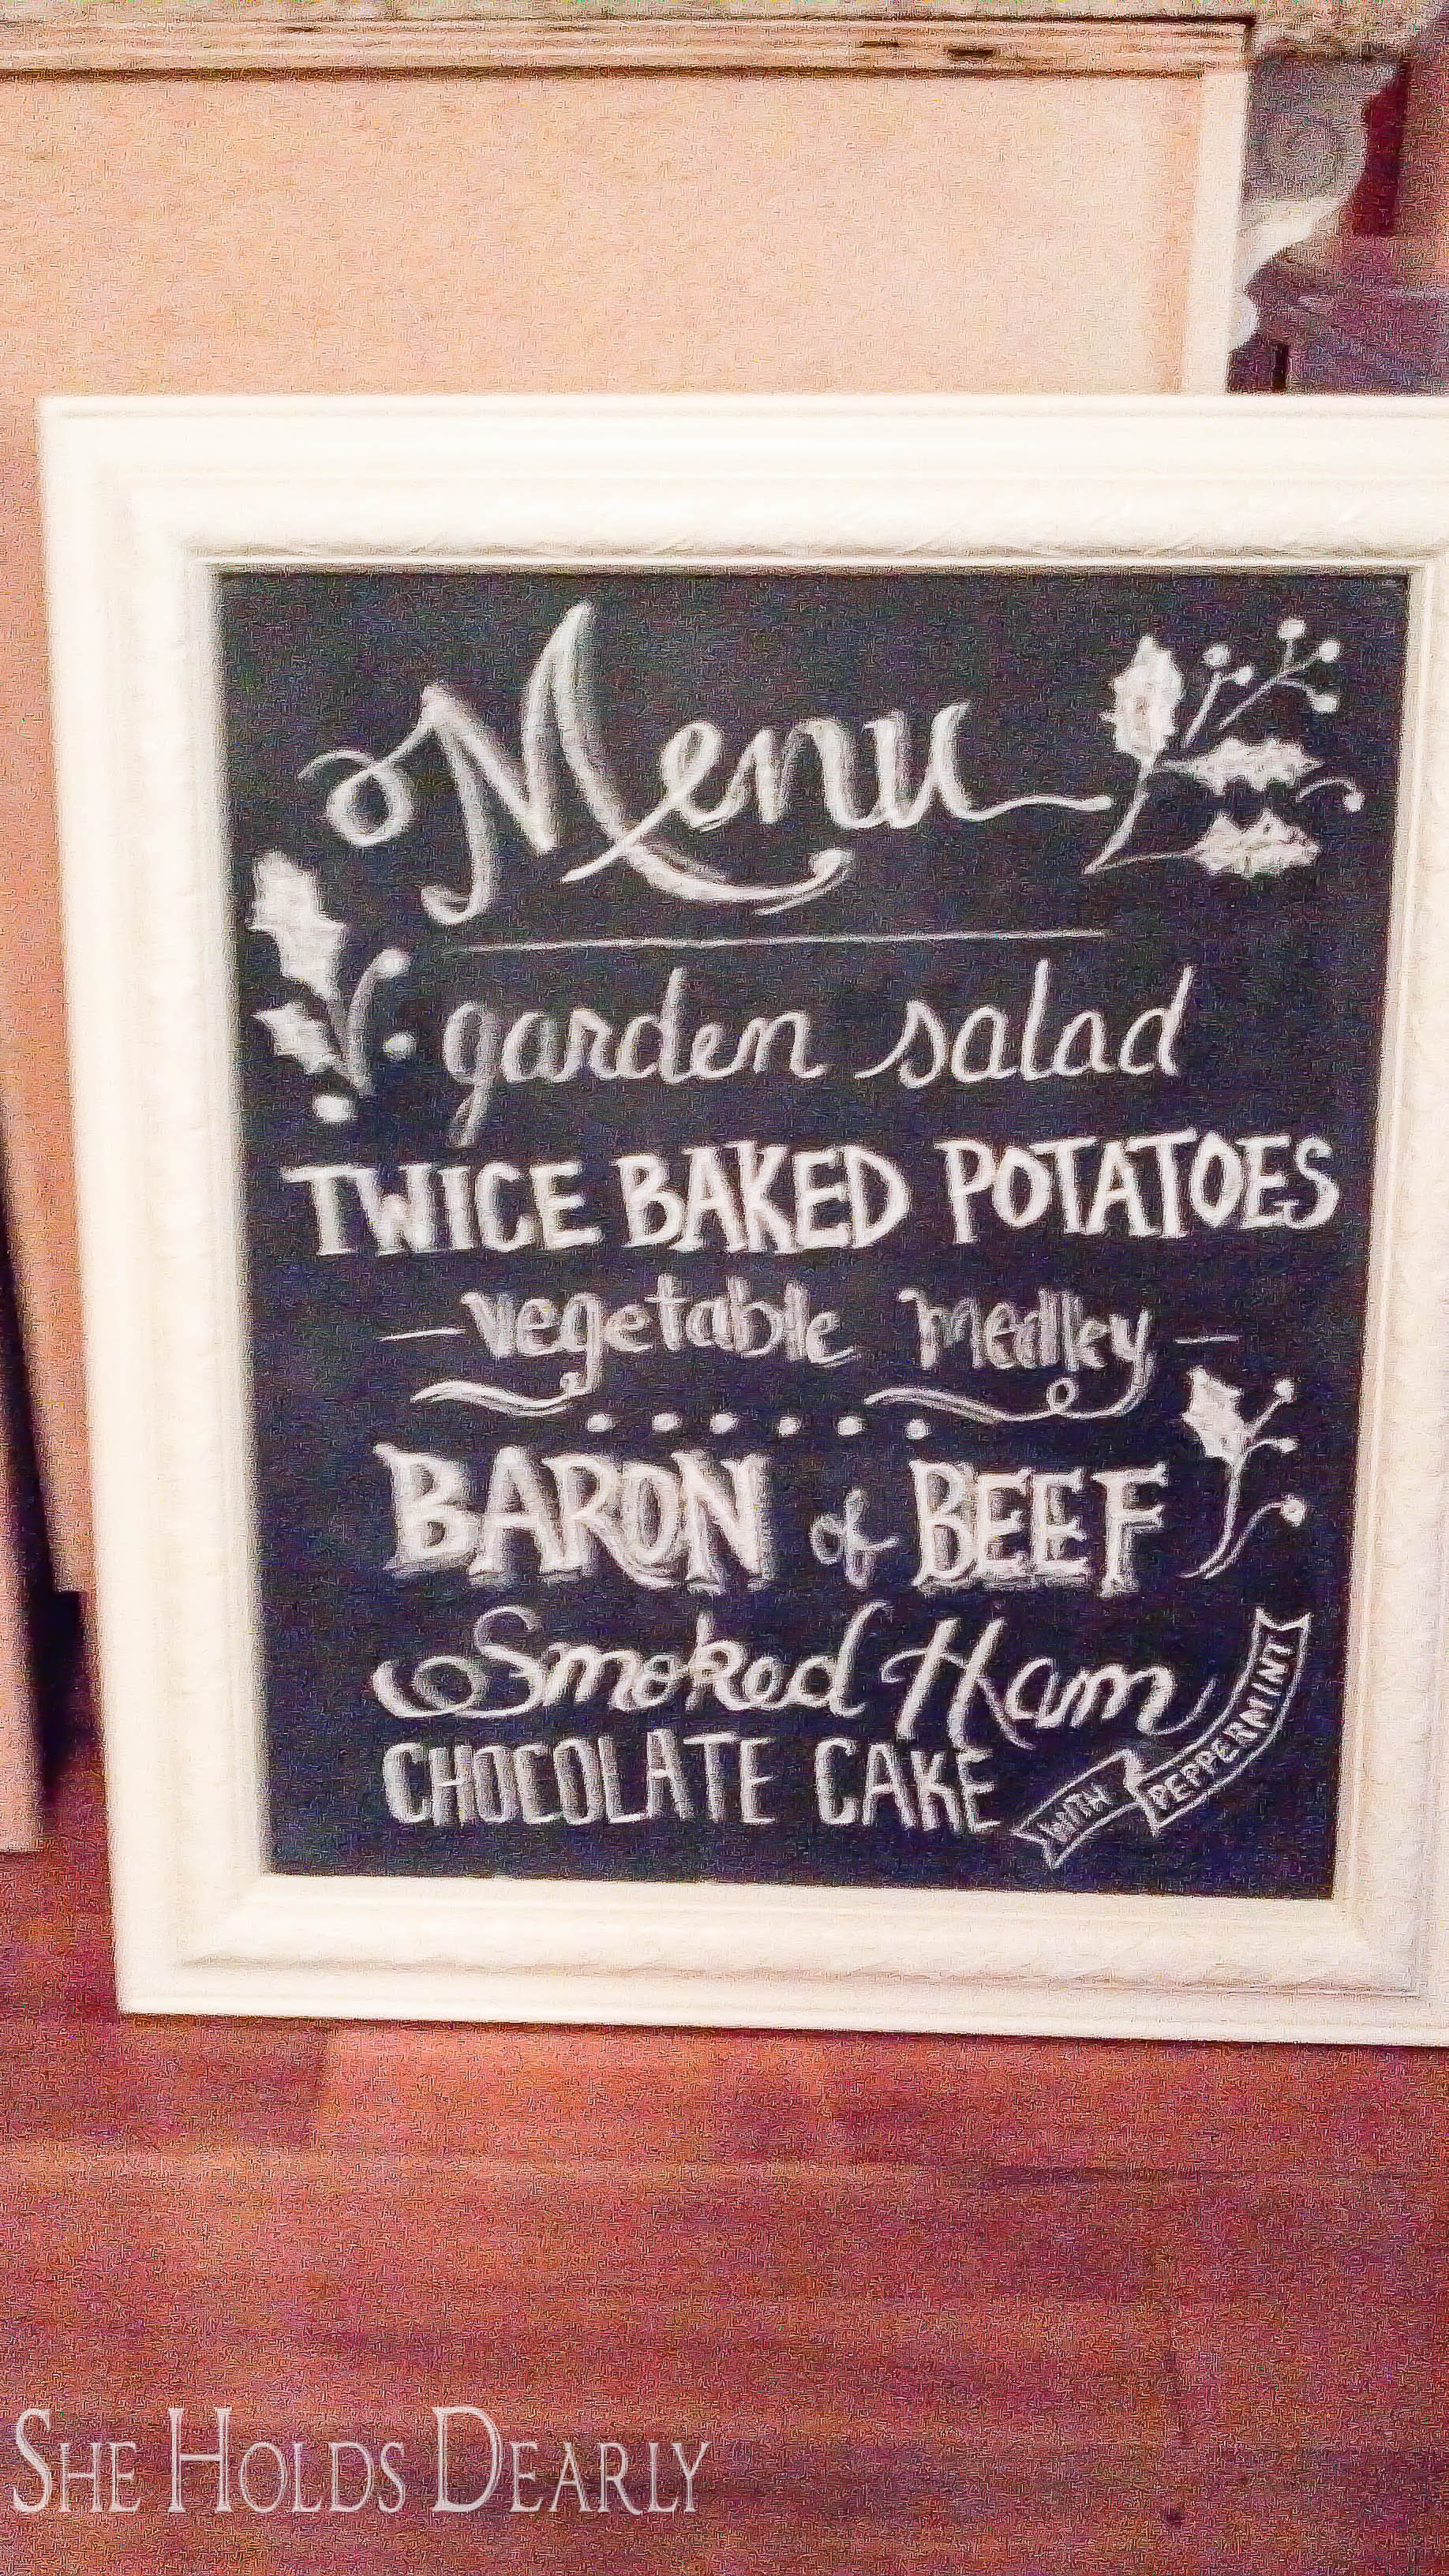 Menu
garden salad
TWICE BAKED POTATOES
vegetable medley
BARON of BEEF
Smoked Ham
CHOCOLATE CAKE
WITH PEPPERMINT
SHE HOLDS DEARLY